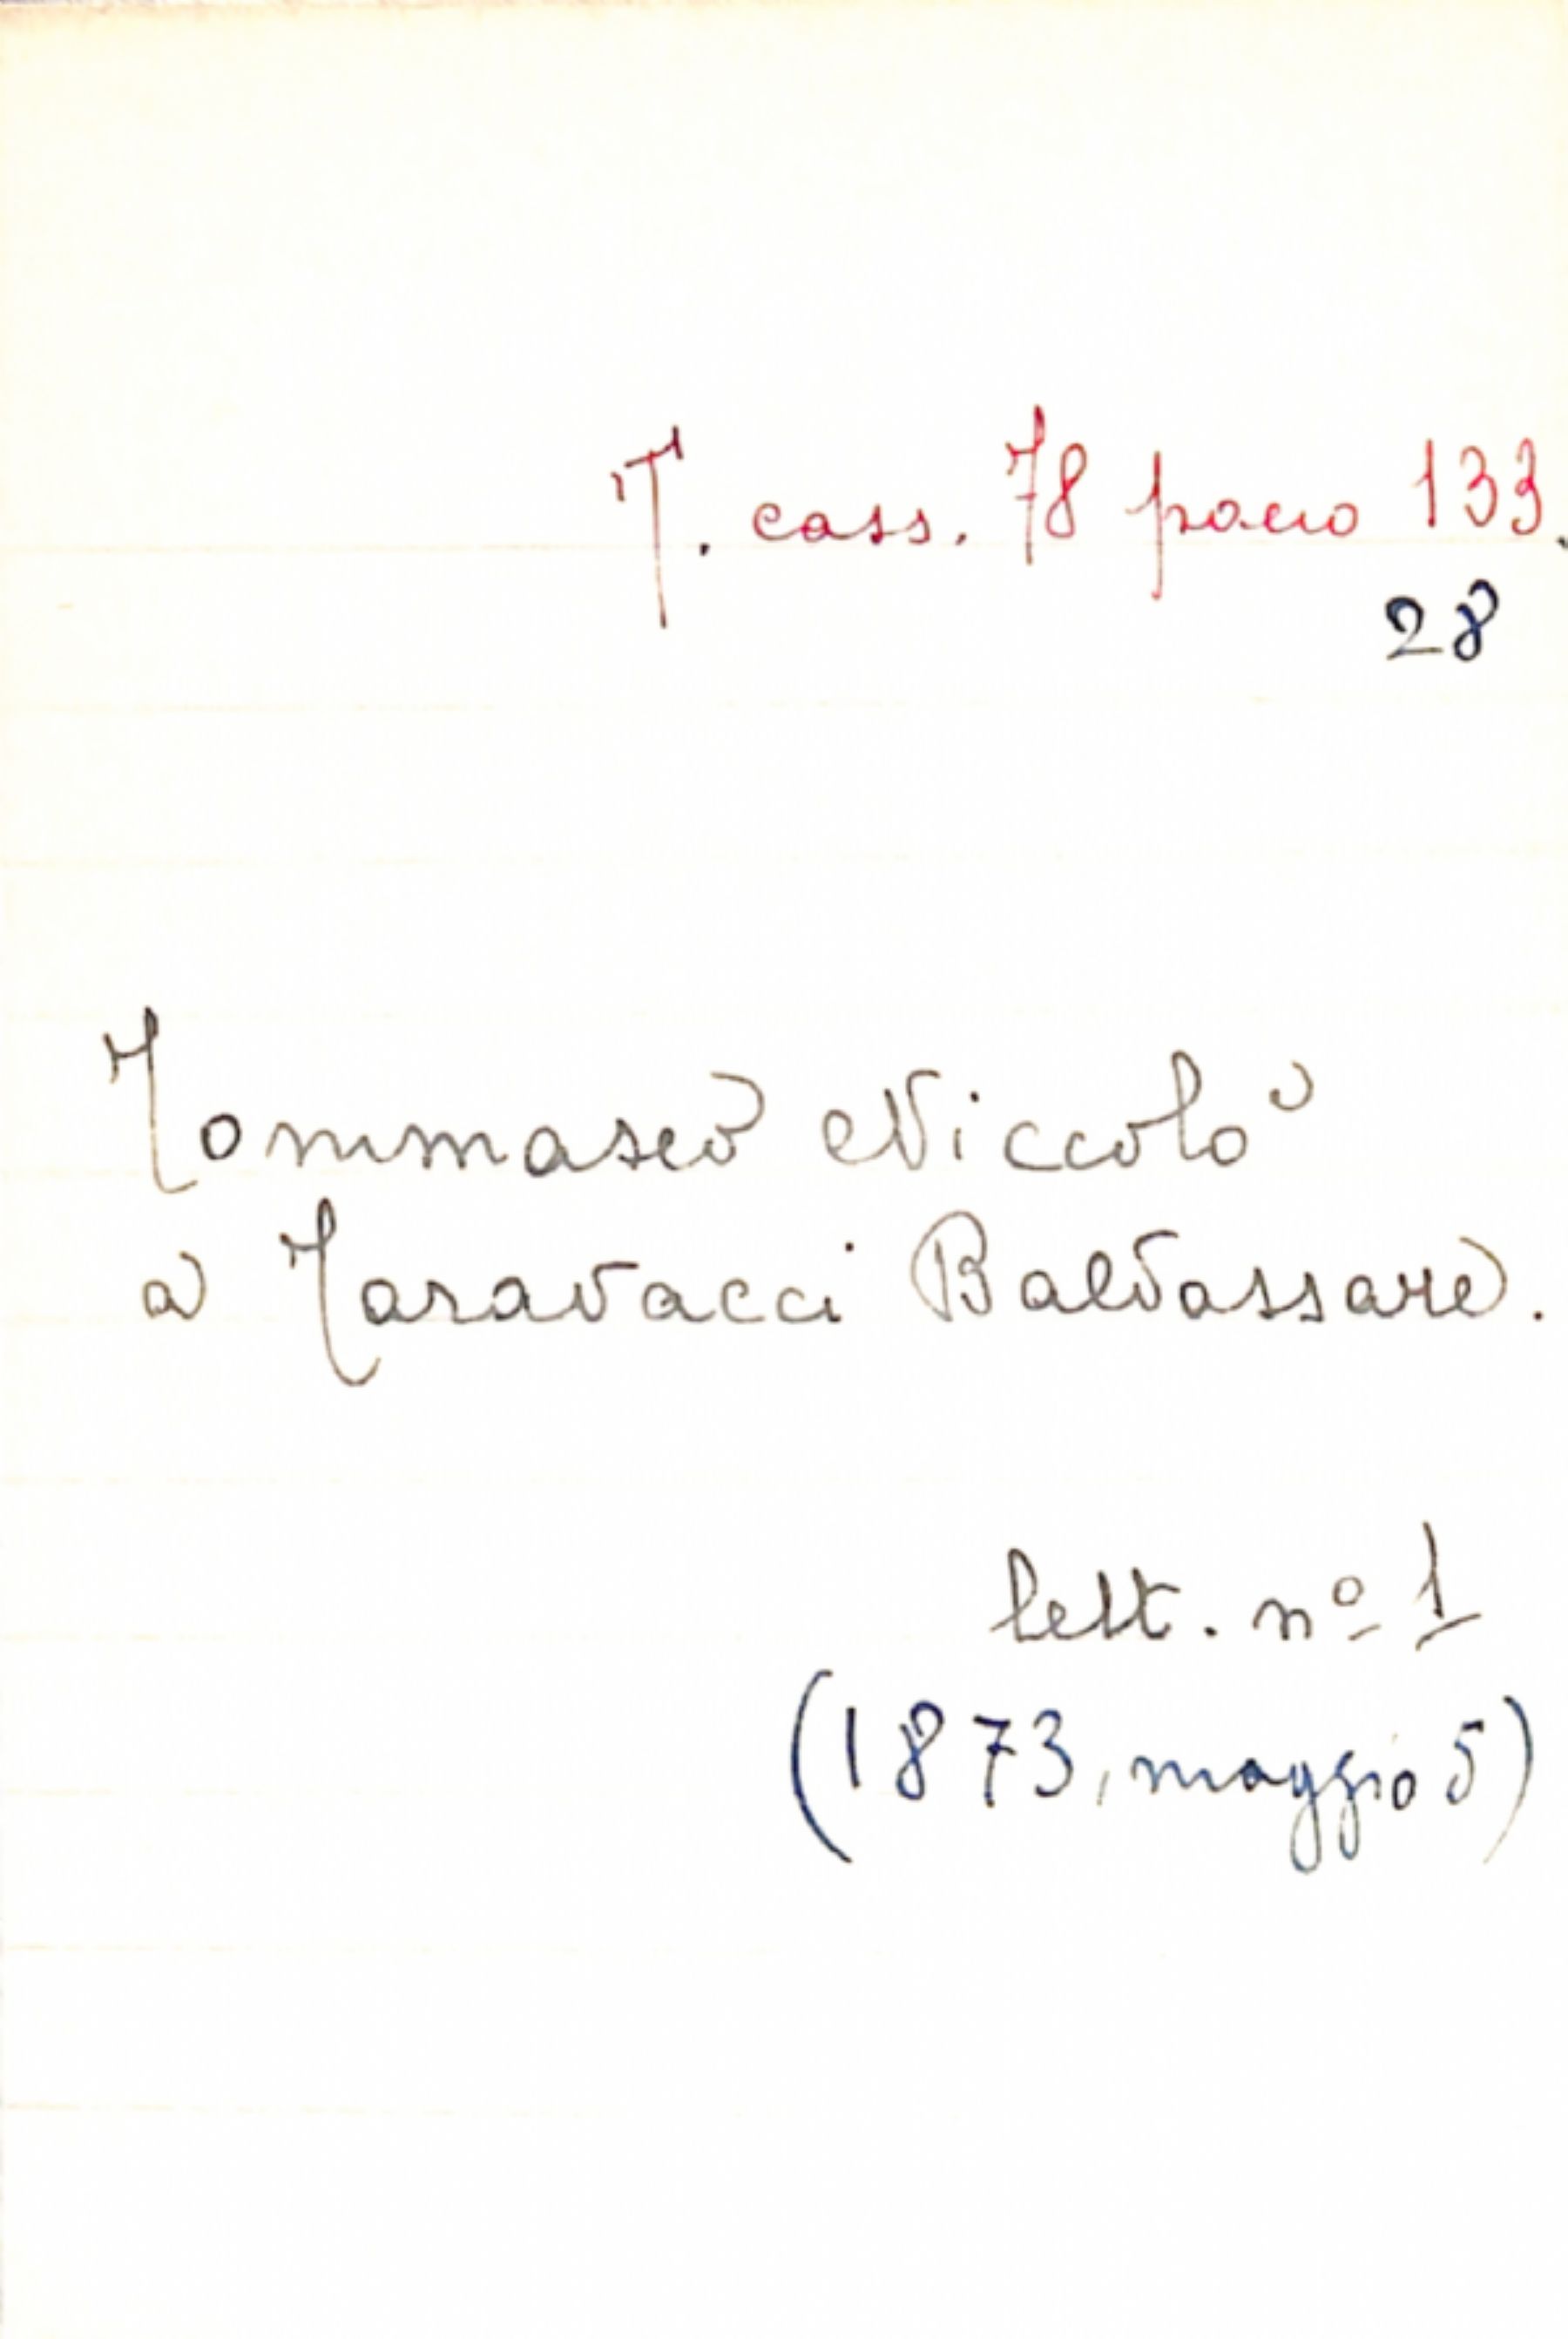 T. cass. 78 pacco 133.
28
Tommaseo Niccolò
a Taravacci Baldassare.
lett. nº 1
(1873, maggio 5)